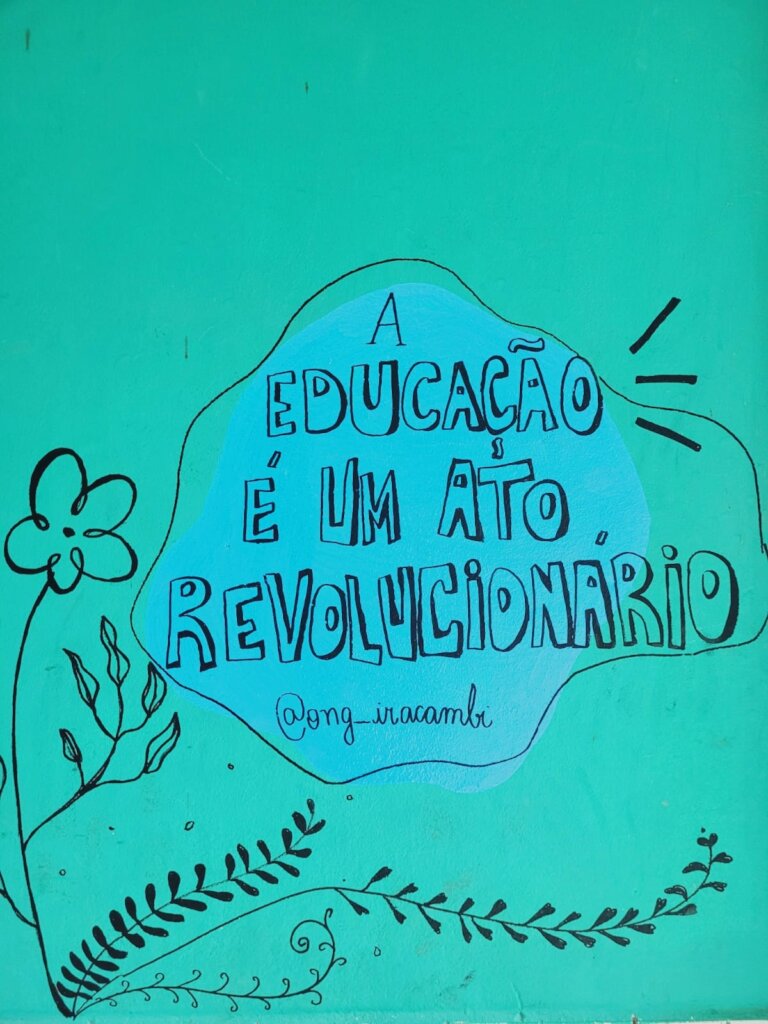 A
EDUCAÇÃO
É UM ATO
REVOLUCIONÁRIO
@ong_iracambi